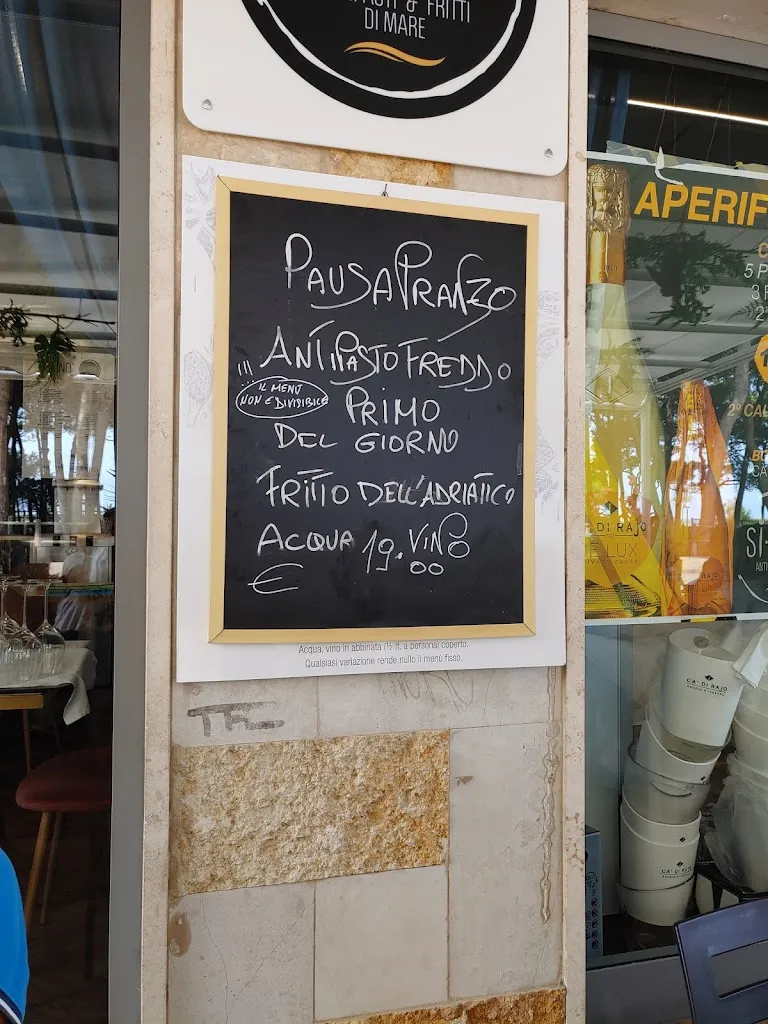 & FRITTI
DI MARE
PAUSA PRANZO
ANTIPASTO FREDDO
!!! IL MENÙ
NON È DIVISIBILE
PRIMO
DEL GIORNO
FRITTO DELL'ADRIATICO
ACQUA VINO
€ 19.00
Acqua, vino in abbinata (½ lt. a persona) coperto.
Qualsiasi variazione rende nullo il menù fisso.
APERIF
5 P
3
2
2° CAL
DI RAJO
LUX
RAJO
SI-
ANTI
CA' DI RAJO
CA' DI RAJO